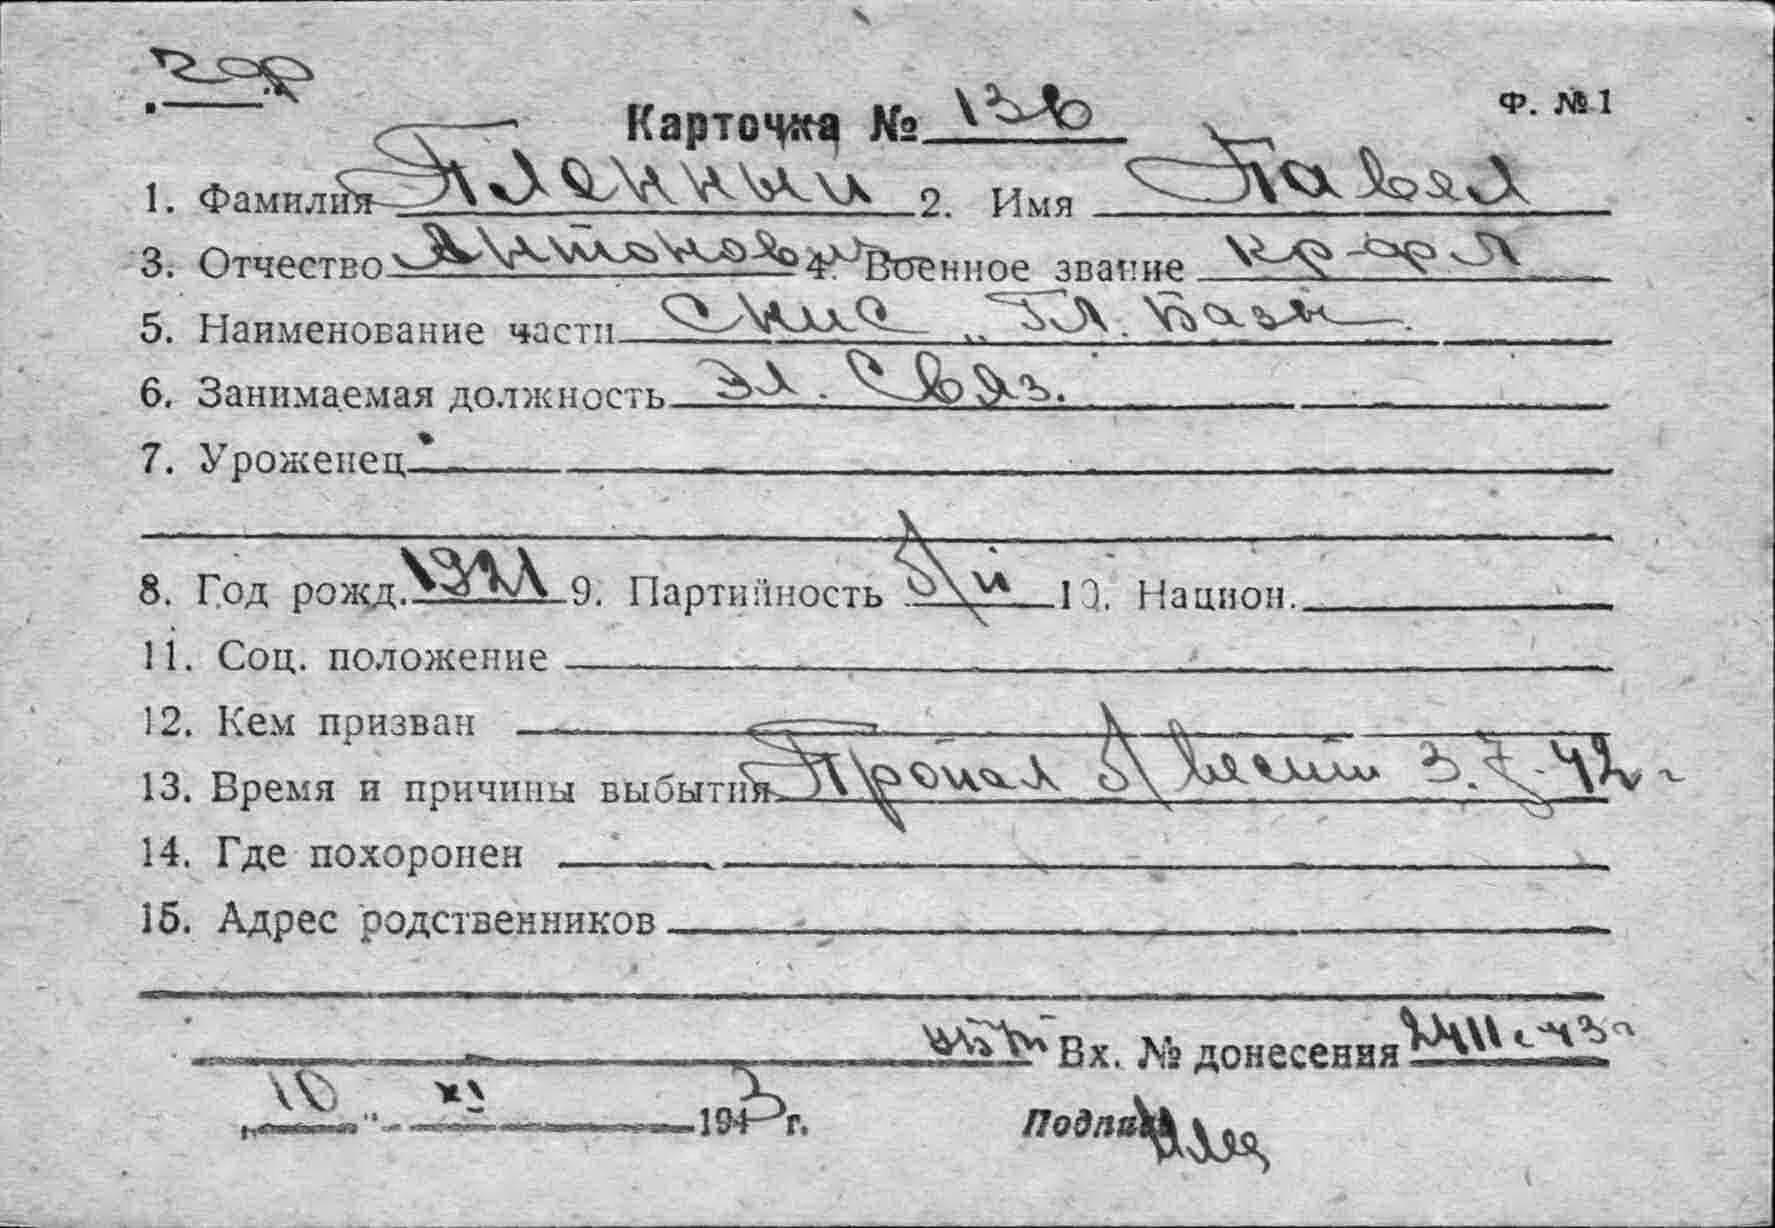 чф
Карточка № 136
Ф. № 1
1. Фамилия Пленный 2. Имя Павел
3. Отчество Антонович 4. Военное звание кр-фл
5. Наименование части СКИС Гл. Базы
6. Занимаемая должность Эл. Связ.
7. Уроженец
8. Год рожд. 1921 9. Партийность Б/п 10. Национ.
11. Соц. положение
12. Кем призван
13. Время и причины выбытия Пропал б/вести 3.7.42 г
14. Где похоронен
15. Адрес родственников
Вх. № донесения 2411с 43 г
10 XI 1943 г. Подпись